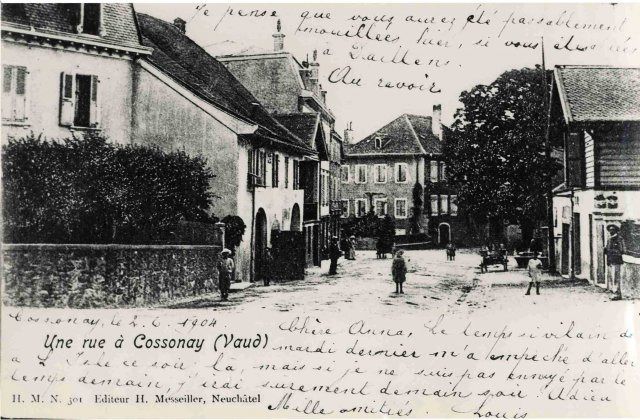 Je pense que vous aurez été passablement
mouillées hier, si vous êtes
à Daillens.
Au revoir
Cossonay, le 2. 6. 1904
Une rue à Cossonay (Vaud)
Chère Anna, Le temps si vilain de
mardi dernier m'a empêché d'aller
à L'Isle ce soir, la mais si je ne suis pas envoyé par le
temps demain, j'irai surement demain soir. Adieu
H. M. N. 301 Editeur H. Messeiller, Neuchâtel
Mille amitiés. Louis